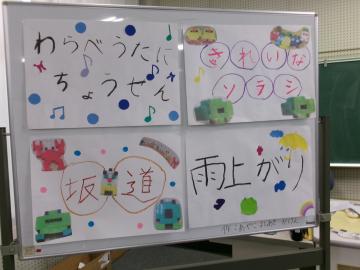 わらべうたに
ちょうせん
きれいな
ソラシ
坂道
雨上がり